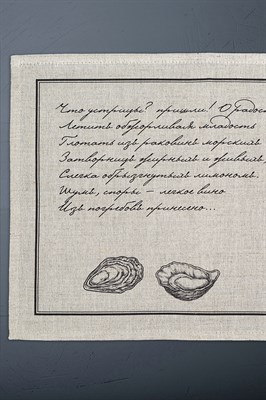 Что устрицы? пришли! О радос
Летитъ обжорливая младость
Глотать изъ раковинъ морскихъ
Затворницъ жирныхъ и живыхъ,
Слегка обрызгнутыхъ лимономъ.
Шумъ, споры – легкое вино
Изъ погребовъ принесено...